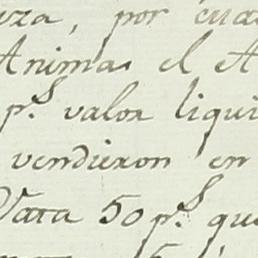 eza, por cua
Animas el A
p.s valor liqui
vendieron en
Vata 50 p.s que